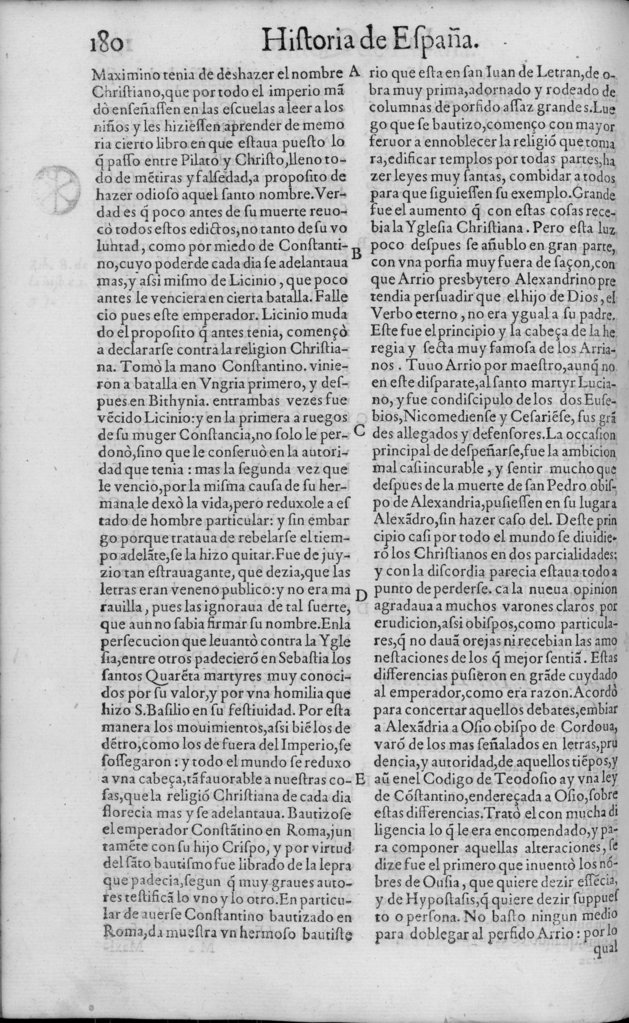 180 Historia de España.
Maximino tenia de deshazer el nombre
Christiano,que por todo el imperio mã
dò enseñassen en las escuelas a leer a los
niños y les hiziessen aprender de memo
ria cierto libro en que estaua puesto lo
q̃ passo entre Pilato y Christo,lleno to-
do de mẽtiras y falsedad,a proposito de
hazer odioso aquel santo nombre.Ver-
dad es q̃ poco antes de su muerte reuo-
cò todos estos edictos,no tanto de su vo
luntad, como por miedo de Constanti-
no,cuyo poder de cada dia se adelantaua
mas,y assi mismo de Licinio , que poco
antes le venciera en cierta batalla. Falle
cio pues este emperador. Licinio muda
do el proposito q̃ antes tenia, començò
a declararse contra la religion Christia-
na. Tomò la mano Constantino. vinie-
ron a batalla en Vngria primero, y des-
pues en Bithynia. entrambas vezes fue
vẽcido Licinio:y en la primera a ruegos
de su muger Constancia,no solo le per-
donò,sino que le conseruò en la autori-
dad que tenia : mas la segunda vez que
le vencio,por la misma causa de su her-
mana le dexò la vida,pero reduxole a es
tado de hombre particular: y sin embar
go porque trataua de rebelarse el tiem-
po adelãte,se la hizo quitar.Fue de juy-
zio tan estrauagante, que dezia,que las
letras eran veneno publico:y no era ma
rauilla , pues las ignoraua de tal suerte,
que aun no sabia firmar su nombre.Enla
persecucion que leuantò contra la Ygle
sia,entre otros padecierõ en Sebastia los
santos Quarẽta martyres muy conoci-
dos por su valor,y por vna homilia que
hizo S.Basilio en su festiuidad. Por esta
manera los mouimientos,assi biẽ los de
dẽtro,como los de fuera del Imperio,se
sossegaron : y todo el mundo se reduxo
a vna cabeça,tã fauorable a nuestras co-
sas,que la religiõ Christiana de cada dia
florecia mas y se adelantaua. Bautizose
el emperador Constãtino en Roma,jun
tamẽte con su hijo Crispo, y por virtud
del sãto bautismo fue librado de la lepra
que padecia,segun q̃ muy graues auto-
res testificã lo vno y lo otro.En particu-
lar de auerse Constantino bautizado en
Roma,da muestra vn hermoso bautiste
A
B
C
D
E
rio que esta en san Iuan de Letran,de o-
bra muy prima,adornado y rodeado de
columnas de porfido assaz grandes.Lue
go que se bautizo,començo con mayor
feruor a ennoblecer la religiõ que toma
ra,edificar templos por todas partes,ha
zer leyes muy santas, combidar a todos
para que siguiessen su exemplo.Grande
fue el aumento q̃ con estas cosas rece-
bia la Yglesia Christiana . Pero esta luz
poco despues se añublo en gran parte,
con vna porfia muy fuera de saçon,con
que Arrio presbytero Alexandrino pre
tendia persuadir que el hijo de Dios, el
Verbo eterno , no era ygual a su padre.
Este fue el principio y la cabeça de la he
regia y secta muy famosa de los Arria-
nos . Tuuo Arrio por maestro,aunq̃ no
en este disparate,al santo martyr Lucia-
no, y fue condiscipulo de los dos Euse-
bios,Nicomediense y Cesariẽse, sus grã
des allegados y defensores.La occasion
principal de despeñarse,fue la ambicion
mal casi incurable , y sentir mucho que
despues de la muerte de san Pedro obis-
po de Alexandria,pusiessen en su lugar a
Alexãdro,sin hazer caso del. Deste prin
cipio casi por todo el mundo se diuidie-
rõ los Christianos en dos parcialidades;
y con la discordia parecia estaua todo a
punto de perderse. ca la nueua opinion
agradaua a muchos varones claros por
erudicion,assi obispos, como particula-
res,q̃ no dauã orejas ni recebian las amo
nestaciones de los q̃ mejor sentiã. Estas
differencias pusieron en grãde cuydado
al emperador,como era razon.Acordò
para concertar aquellos debates,embiar
a Alexãdria a Osio obispo de Cordoua,
varõ de los mas señalados en letras,pru
dencia,y autoridad,de aquellos tiẽpos,y
aũ en el Codigo de Teodosio ay vna ley
de Cõstantino,endereçada a Osio,sobre
estas differencias.Tratò el con mucha di
ligencia lo q̃ le era encomendado,y pa-
ra componer aquellas alteraciones, se
dize fue el primero que inuentò los nõ-
bres de Ousia, que quiere dezir essẽcia,
y de Hypostasis,q̃ quiere dezir suppues
to o persona. No basto ningun medio
para doblegar al perfido Arrio : por lo
qual